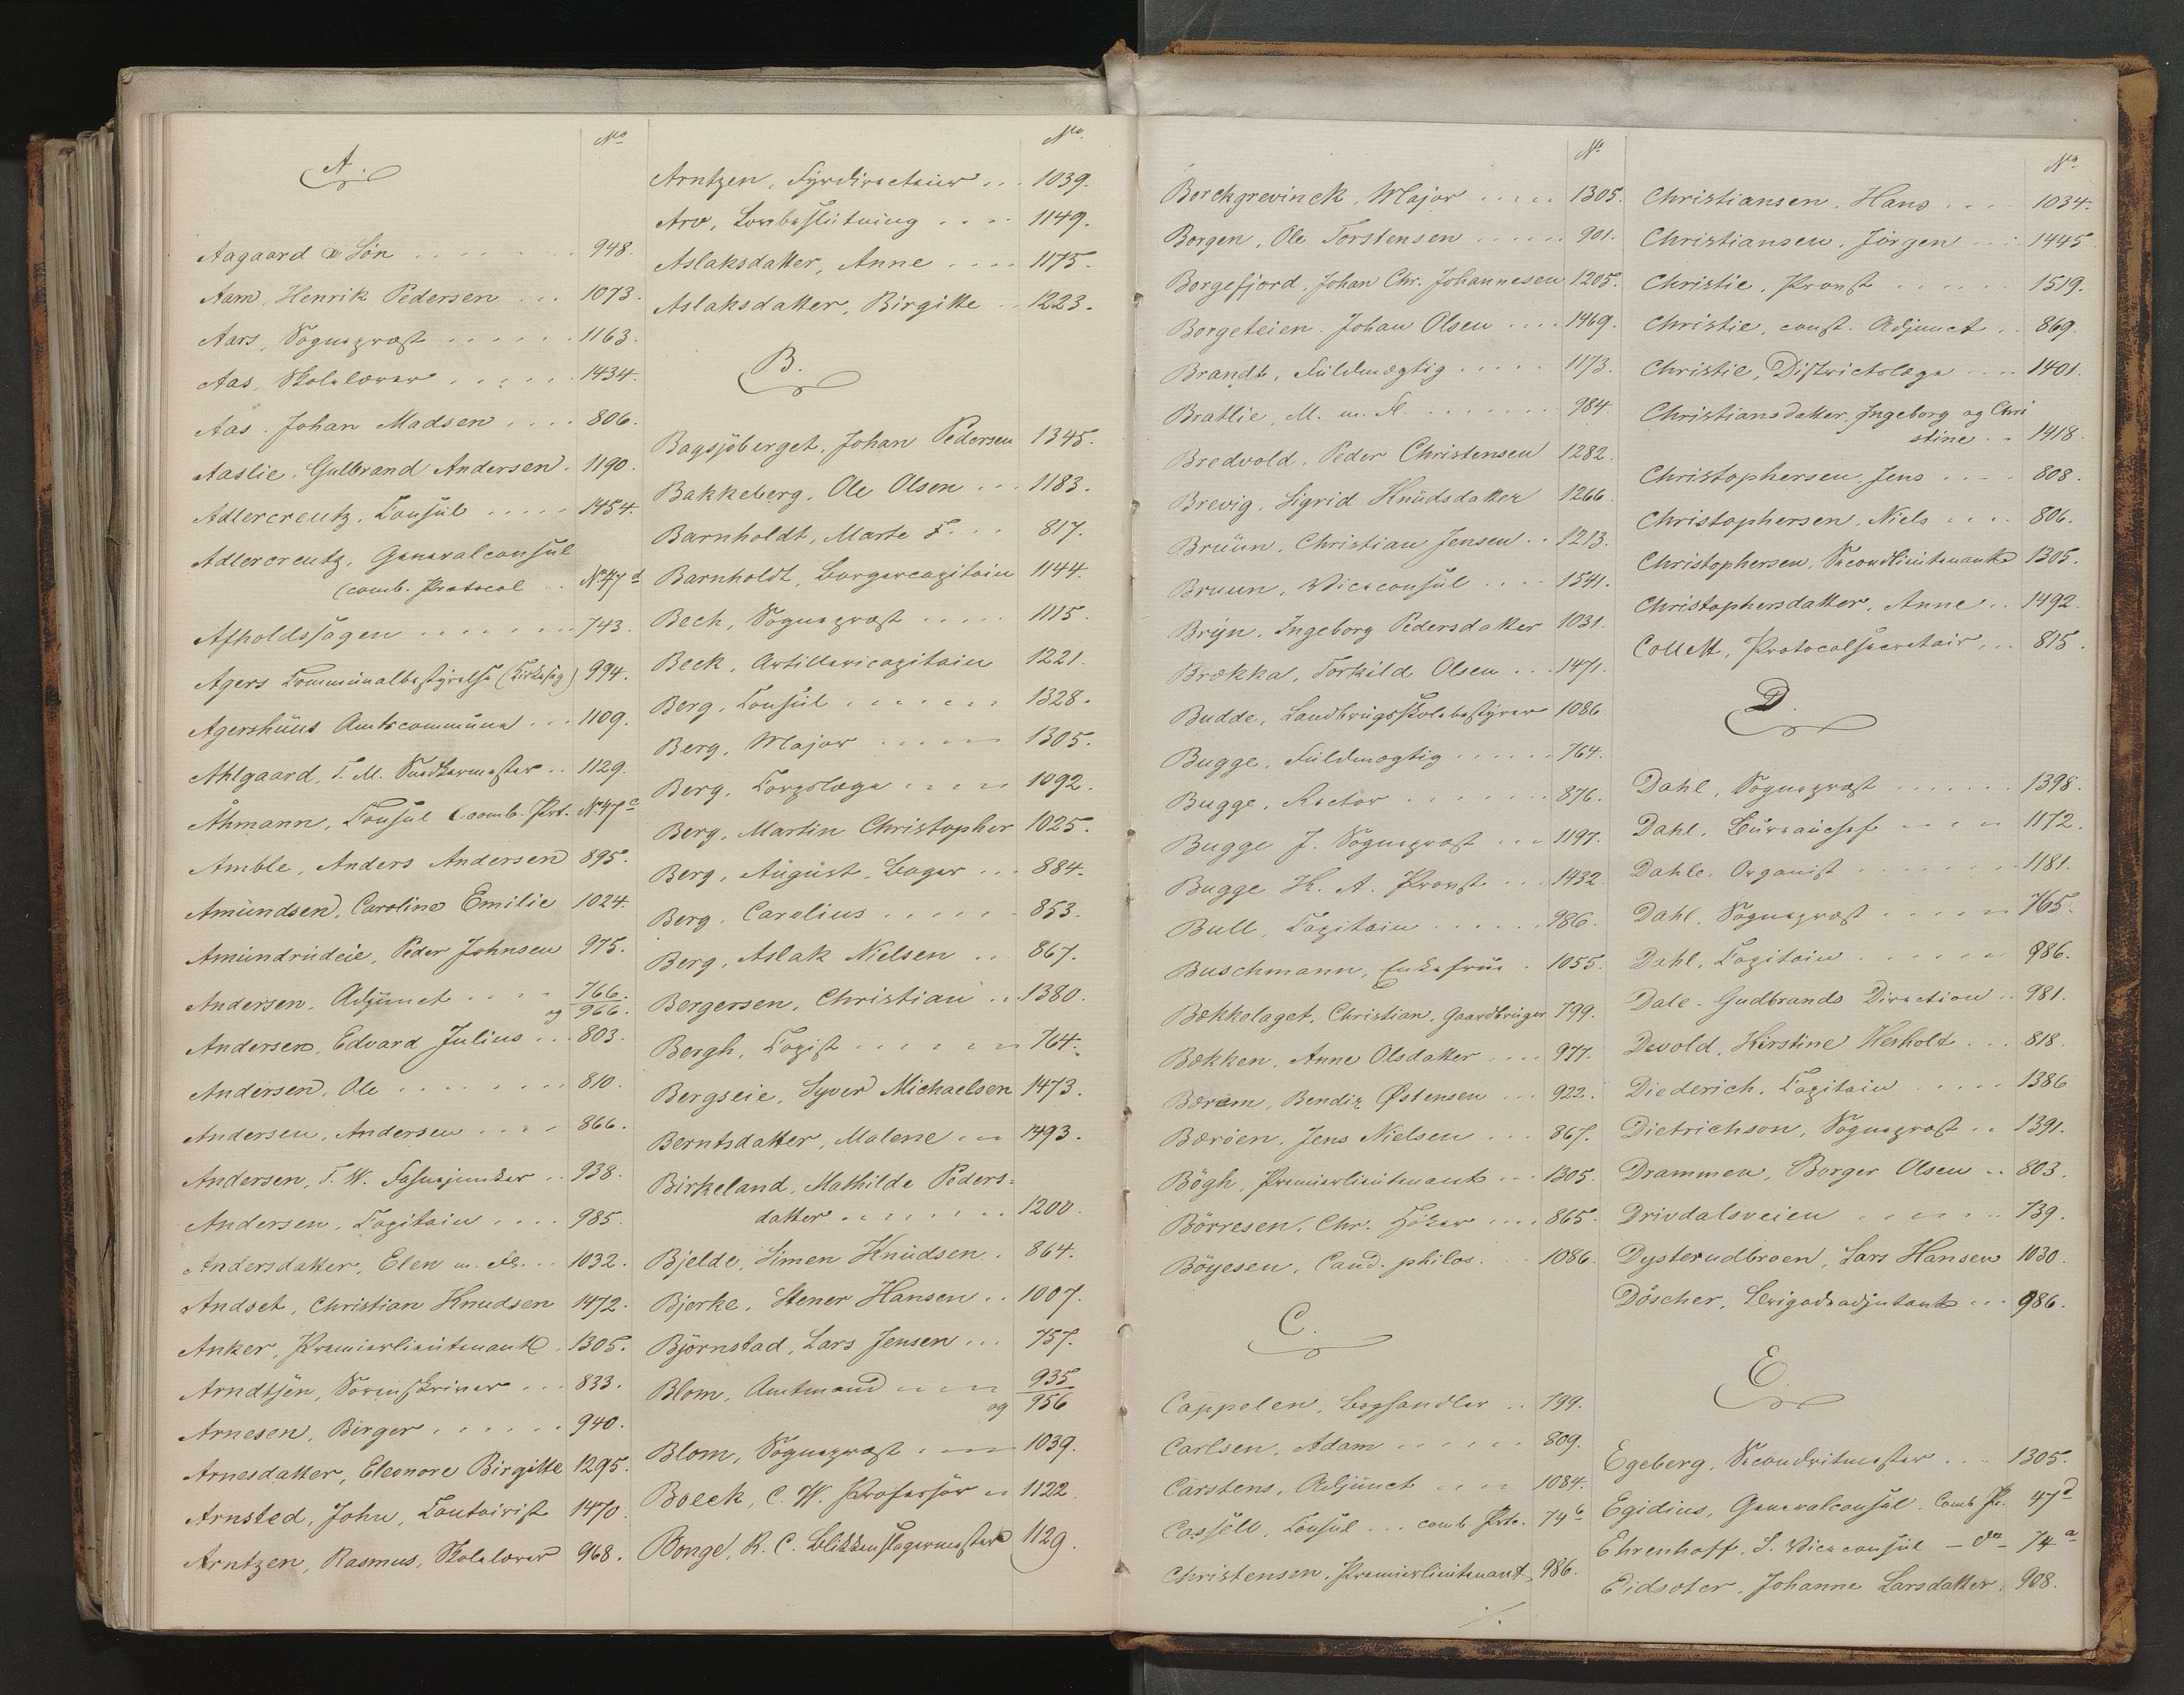 No
A.
Aagaard & Sön . . . . . 948.
Aam, Henrik Pedersen . . . 1073.
Aars, Sognepræst . . . . . 1163.
Aas, Skolelærer . . . . . 1434.
Aas, Johan Madsen . . . . 806.
Aaslie, Gulbrand Andersen . 1190.
Adlercreutz, Consul . . . . . 1454.
Adlercreutz, Generalconsul
(comb. Protocol . . No 47 d
Afholdssagen . . . . . . 743.
Agers Communalbestyrelse (Kirkesag) 994.
Agershuus Amtscommune . . . 1109.
Ahlgaard, T. M. Snedkermester . . 1129.
Åhmann, Consul (comb. Prt. No 47 c
Amble, Anders Andersen 895.
Amundsen, Caroline Emilie 1024.
Amundrudeie, Peder Johnsen 975.
Andersen, Adjunct . . . . 766.
og 966.
Andersen, Edvard Julius . . . 803.
Andersen, Ole . . . . . . . 810.
Andersen, Andersen . . . . 866.
Andersen, T. W. Fasnejunker . . 938.
Andersen, Capitain . . . . 985.
Andersdatter, Elen m. fl. . . 1032.
Andset, Christian Knudsen 1472.
Anker, Premierlieutenant . 1305.
Arndtsen, Sorenskriver . . . 833.
Arnesen, Birger . . . . . . 940.
Arnesdatter, Eleonore Birgitte 1295.
Arnsted, John, Contoirist 1470.
Arntzen, Rasmus, Skolelærer 968.
No.
Arntzen, Fyrdirecteur . . . 1039.
Arv, Lovbeslutning . . . . 1149.
Aslaksdatter, Anne . . . . 1175.
Aslaksdatter, Birgitte . . 1223.
B.
Bagsjöberget, Johan Pedersen 1345.
Bakkeberg, Ole Olsen . . . 1183.
Barnholdt, Marte F. . . 817.
Barnholdt, Borgercapitain 1144.
Bech, Sognepræst . . . . . 1115.
Beck, Artillericapitain 1221.
Berg, Consul . . . . . . 1328.
Berg, Major . . . . . 1305.
Berg, Corpslæge . . . . . 1092.
Berg, Martin Christopher 1025.
Berg, August, Bager . . . 884.
Berg, Carelius . . . . . . 853.
Berg, Aslak Nielsen . . 867.
Bergersen, Christian . . . 1380.
Bergh, Copist . . . . . . 764.
Bergseie, Syver Michaelsen 1473.
Berntsdatter, Malene . . . 1493.
Birkeland, Mathilde Peders-
datter . . . . . . . 1200.
Bjelde, Simen Knudsen . 864.
Bjerke, Stener Hansen . . 1007.
Björnstad, Lars Jensen . . . 757.
Blom, Amtmand . . . . 935
og 956
Blom, Sognepræst . . . . 1039.
Boeck, C. W. Professor . . 1122.
Bonge, R. C. Blikkenslagermester 1129.
No
Borchgrevinck, Major . . . . . 1305.
Borgen, Ole Torstensen . . . . . 901.
Borgefjord, Johan Chr. Johannesen 1205.
Borgeteien, Johan Olsen . . . . 1469.
Brandt, Fuldmægtig . . . . . 1173.
Bratlie, M. m. fl. . . . . . . . 984
Bredvold, Peder Christensen 1282.
Brevig, Sigrid Knudsdatter 1266.
Bruun, Christian Jensen . . 1213.
Bruun, Viceconsul . . . . 1541.
Bryn, Ingeborg Pedersdatter 1031.
Brækka, Torkild Olsen . . . 1471.
Budde, Landbrugsskolebestyrer 1086.
Bugge, Fuldmægtig . . . . . . 764.
Bugge, Rector . . . . . . . 876.
Bugge J. Sognepræst . . . 1197.
Bugge H. A. Provst . . . 1432.
Bull, Capitain . . . . . . 986.
Buschmann, Enkefrue . 1055.
Bækkelaget, Christian, Gaardbruger 799.
Bækken, Anne Olsdatter . . . . 977.
Bærem, Bendix Østensen . . . 922.
Bæröen, Jens Nielsen . . . 867.
Bögh, Premierlieutenant . . . 1305.
Börresen, Chr. Höker . . . . 865.
Böyesen, Cand. philos. . . . 1086.
C.
Cappelen, Boghandler . . 799.
Carlsen, Adam . . . . . . 809.
Carstens, Adjunct . . . . 1084.
Cassèlo, Consul . . . comb. Prtc. 74 b
Christensen, Premierlieutenant 986.
No.
Christiansen, Hans . . . . 1034.
Christiansen, Jörgen . . . 1445.
Christie, Provst . . . . . . 1519.
Christie, const. Adjunct . . 869.
Christie, Districtslæge . . . . 1401.
Christiansdatter, Ingeborg og Chri
stine . . 1418.
Christophersen, Jens . . . . 808.
Christophersen, Niels . . . . 806.
Christophersen, Secondlieutenant 1305.
Christophersdatter, Anne . . 1492.
Collett, Protocolsecretair . . . 815.
D.
Dahl, Sognepræst . . . . . . 1398.
Dahl, Bureauchef . . . . 1172.
Dahle, Organist . . . . . . . 1181.
Dahl, Sognepræst . . . . . . 765.
Dahl, Capitain . . . . . . 986.
Dale-Gudbrands Direction . . 981.
Devold, Kirstine Herholdt . . . 818.
Diederich, Capitain . . . . . 1386
Dietrichson, Sognepræst . . 1391.
Drammen, Borger Olsen . . 803.
Drivdalsveien . . . . . . 739.
Dysterudbroen, Lars Hansen 1030.
Döscher, Brigadeadjutant . . . 986.
E.
Egeberg, Secondritmester . . . 1305.
Egidius, Generalconsul. Comb Pr. 47 d
Ehrenhoff, S. Viceconsul – do – 74 a
Eidsæter, Johanne Larsdatter. 908.
./.